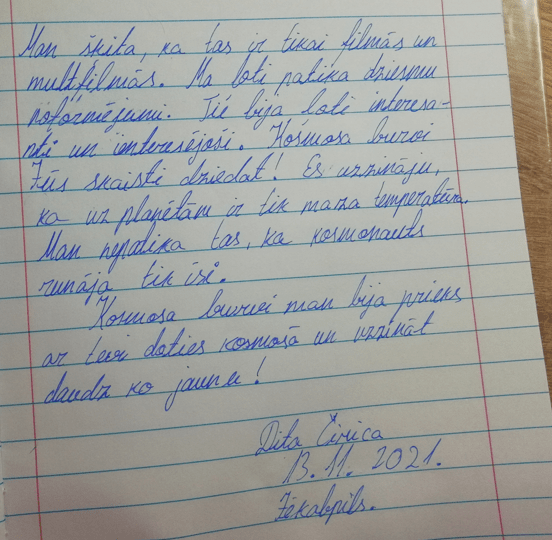 Man šķita, ka tas ir tikai filmās un
multfilmās. Ma ļoti patika dziesmu
noformējumi. Tie bija ļoti interesa-
nti un ieinteresējoši. Kosmosa burvi
Jūs skaisti dziedat! Es uzzināju,
ka uz planētām ir tik maza temperatūra.
Man nepatika tas, ka kosmonauts
runāja tik īsi.
Kosmosa burvi man bija prieks
ar tevi doties kosmosā un uzzināt
daudz ko jaunu!
Dita
13.11.2021.
Jēkabpils.